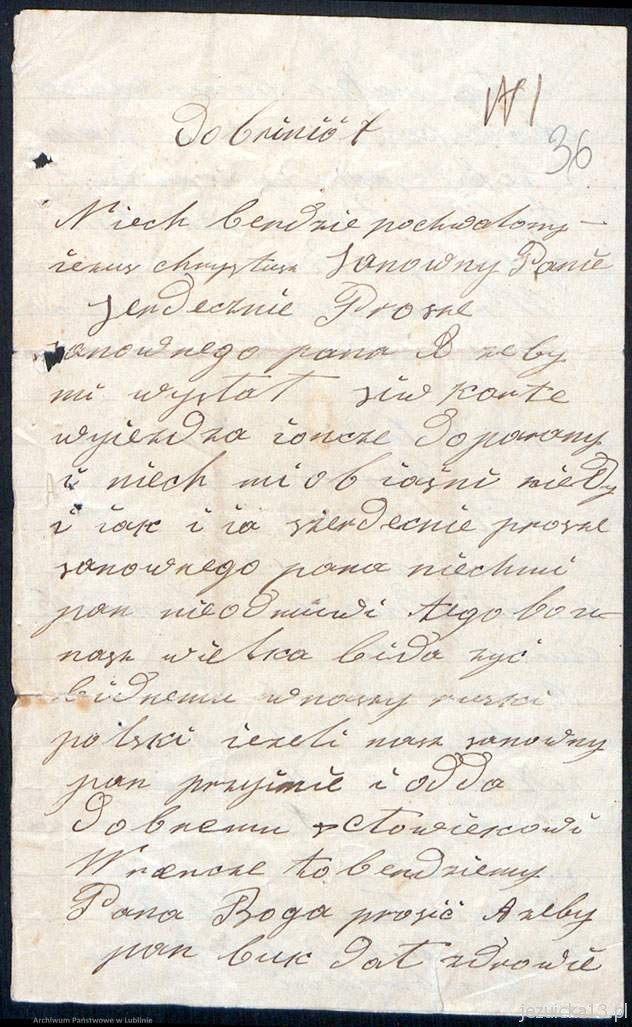 36
Niech bendzie pochwalony
iezus chrystusz sanowny Panie
serdecznie Prosze
sanownego pana A zeby
mi wystał siw karte
wyiezdza ioncze do parany
i niech mi obiaśni kiedy
i iak i ia szerdecnie prosze
sanownego pana niechmi
pan nieodmuwi tego bo u
nasz wielka bida zyć
bidnemu w naszy ruski
polski iezeli nasz sanowny
pan przyimie i odda
dobremu człowiekowi
W rencze to bendziemy
Pana Boga prosić Azeby
pan buk dał zdrowie
Archiwum Państwowe w Lublinie
jezuicka13.pl